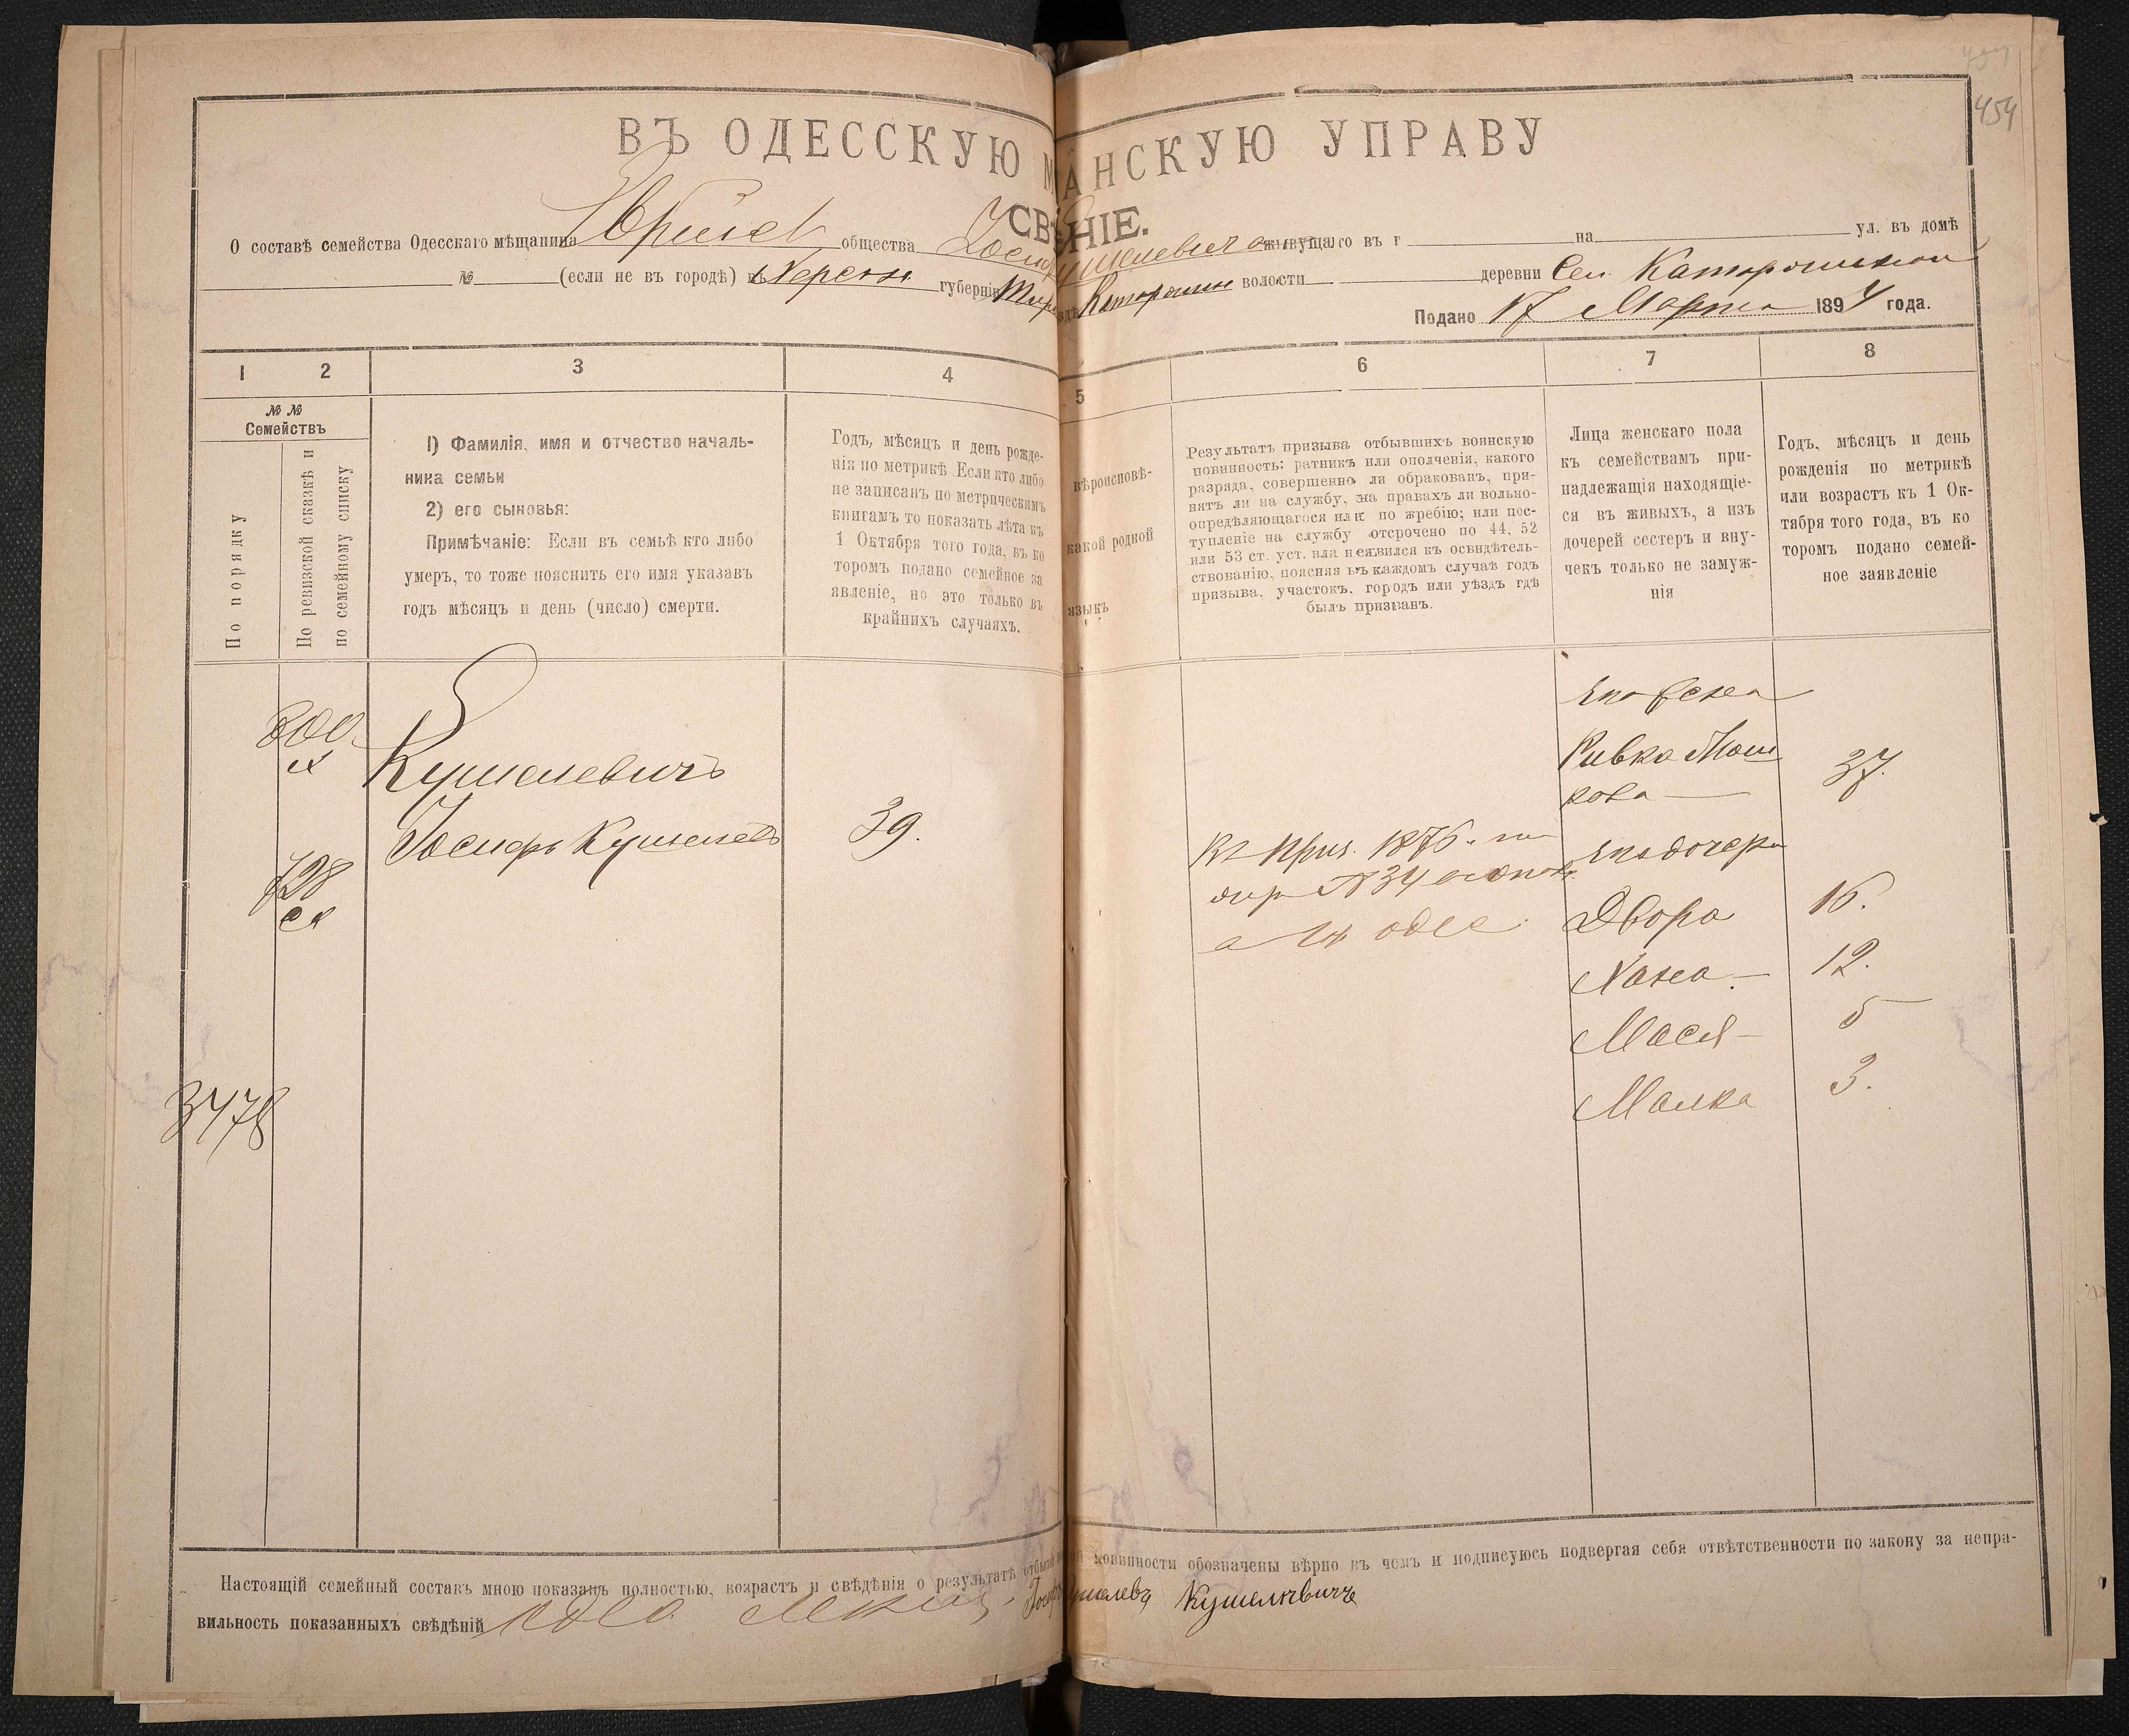 454
ВЪ ОДЕССКУЮ М АНСКУЮ УПРАВУ
СВѢ НІЕ.
О составѣ семейства Одесскаго мѣщанина общества живущаго въ г на ул. въ домѣ
№ (если не въ городѣ) въ Херсон губерніи волости деревни Сел
Подано 17 Марта 1894 года.
1 2 3 4 5 6 7 8
№ № Семействъ
По порядку
По ревизской сказкѣ и
по семейному списку
1) Фамилія, имя и отчество началь-
ника семьи
2) его сыновья:
Примѣчаніе: Если въ семьѣ кто либо
умеръ, то тоже пояснить его имя указавъ
годъ мѣсяцъ и день (число) смерти.
Годъ, мѣсяцъ и день рожде-
нія по метрикѣ. Если кто либо
не записанъ по метрическимъ
книгамъ то показать лѣта къ
1 Октября того года, въ ко
торомъ подано семейное за
явленіе, но это только въ
крайнихъ случаяхъ.
вѣроисповѣ-
какой родной
языкъ
Результатъ призыва отбывшихъ воинскую
повинность: ратникъ или ополченія, какого
разряда, совершенно ли обракованъ, при-
нятъ ли на службу, на правахъ ли вольно-
опредѣляющагося или по жребію; или пос-
тупленіе на службу отсрочено по 44, 52
или 53 ст. уст. или неявился къ освидѣтель-
ствованію, поясняя въ каждомъ случаѣ годъ
призыва, участокъ, городъ или уѣздъ гдѣ
былъ призванъ.
Лица женскаго пола
къ семействамъ при-
надлежащія находящіе-
ся въ живыхъ, а изъ
дочерей сестеръ и вну-
чекъ только не замуж-
нія
Годъ, мѣсяцъ и день
рожденія по метрикѣ
или возрастъ къ 1 Ок-
тября того года, въ ко
торомъ подано семей-
ное заявленіе
800
728
3478
Кушелевичъ
Іосифъ Кушелевъ 39.
1876
№ 34
его жена
Ривка Мош
кова 37.
его дочери
Двора 16.
Хана 12.
Мася 5
Малка 3.
Настоящій семейный составъ мною показанъ полностью, возрастъ и свѣдѣнія о результатѣ отбытія повинности обозначены вѣрно въ чемъ и подписуюсь подвергая себя отвѣтственности по закону за непра-
вильность показанныхъ свѣдѣній Кушелевичъ